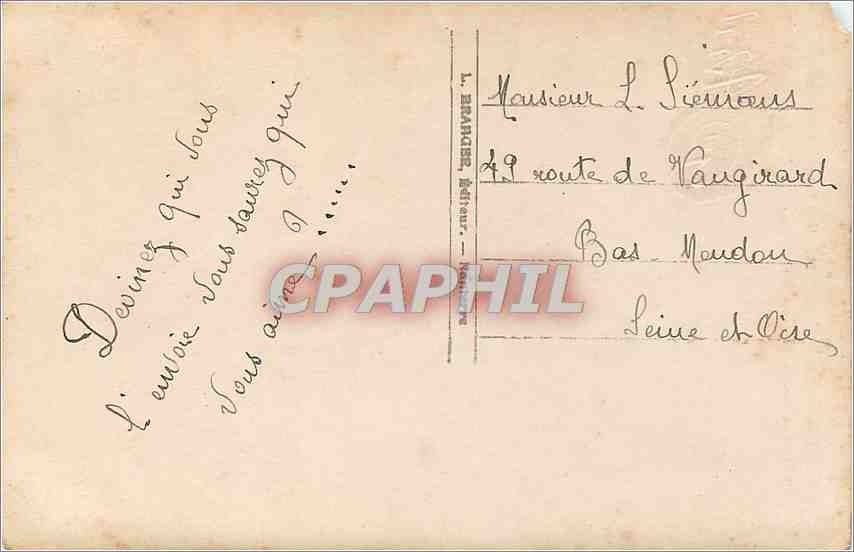 Devinez qui vous
l'envoie vous saurez qui
vous aime ? .....
L. BRANGER, Éditeur. — Nanterre
Monsieur L. Siémoens
49 route de Vaugirard
Bas Meudon
Seine et Oise
CPAPHIL